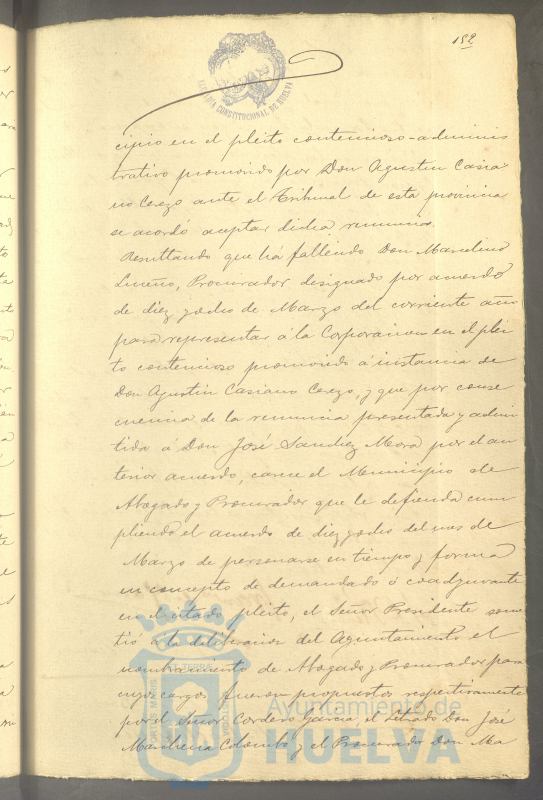 182
ALCALDÍA CONSTITUCIONAL DE HUELVA
cipio en el pleito contencioso-adminis
trativo promovido por Don Agustin Casia
no Cerezo ante el Tribunal de esta provincia
se acordó aceptar dicha renuncia.
Resultando que há fallecido Don Marcelino
Procurador designado por acuerdo
de diez y ocho de Marzo del corriente año
para representar á la Corporacion en el plei
to contencioso promovido á instancia de
Don Agustin Casiano Cerezo, y que por conse
cuencia de la renuncia presentada y admi
tida á Don José Sanchez Mora por el an
terior acuerdo, carece el Municipio de
Abogado y Procurador que le defienda cum
pliendo el acuerdo de diez y ocho del mes de
Marzo de personarse en tiempo y forma
en concepto de demandado ó coadyuvante
en el citado pleito, el Señor Presidente some
tió á la deliberacion del Ayuntamiento el
nombramiento de Abogado y Procurador para
cuyos cargos fueron propuestos respectivamente
por el Señor Cordero Garcia, el letrado Don José
Marchena Colombo y el Procurador Don Ma
Ayuntamiento de
HUELVA